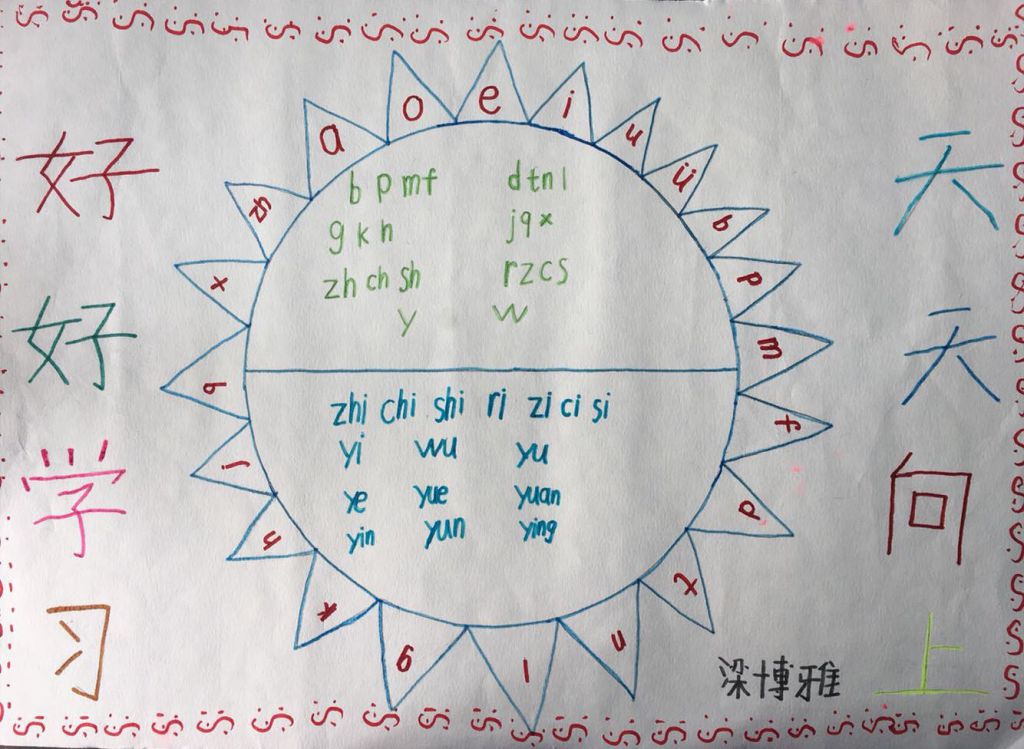 好好学习
天天向上
a o e i u ü b p m f d t n l g k h j q x
b p m f d t n l
g k h j q x
zh ch sh r z c s
y w
zhi chi shi ri zi ci si
yi wu yu
ye yue yuan
yin yun ying
梁博雅